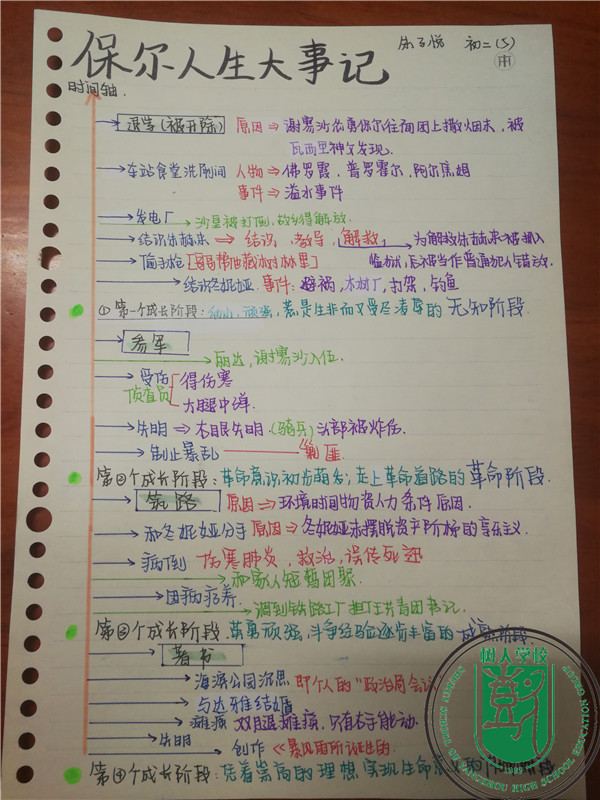 保尔·人生大事记
初二(5)
时间轴
退学(被开除) 原因⇒谢赛沙怂恿保尔往面团上撒烟末,被
瓦西里神父发现.
车站食堂洗刷间 人物⇒佛罗霞,普罗霍尔,阿尔焦姆
事件⇒溢水事件
发电厂 沙皇被打倒,故乡得解放.
结识朱赫来⇒结识,教导,解救 为解救朱赫来被捕入
监狱,后被当作普通犯人错放.
偷手枪[哥哥帮他藏树林里]
结识冬妮娅 事件:避祸,木材厂,打架,钓鱼
①第一个成长阶段: 顽强,惹是生非而又受尽凌辱的无知阶段.
参军
丽达,谢赛沙入伍.
受伤 得伤寒
侦查员 大腿中弹.
失明→右眼失明.(骑兵)头部被炸伤.
制止暴乱 剿匪
第②个成长阶段:革命意识初步萌发;走上革命道路的革命阶段.
筑路 原因⇒环境时间物资人力条件原因.
和冬妮娅分手 原因⇒冬妮娅未摆脱资产阶级的享乐主义.
病倒 伤寒肺炎,救治,误传死迅
和家人短暂团聚
因病疗养 调到铁路工厂担任共青团书记.
第③个成长阶段.英勇顽强,斗争经验逐步丰富的成熟阶段.
著书
海滨公园沉思 即个人的"政治局会议
与达雅结婚
瘫痪 双腿瘫痪,只有右手能动.
失明 创作《暴风雨所诞生的
第④个成长阶段:凭着崇高的理想 实现生命意义的
树人学校
1989